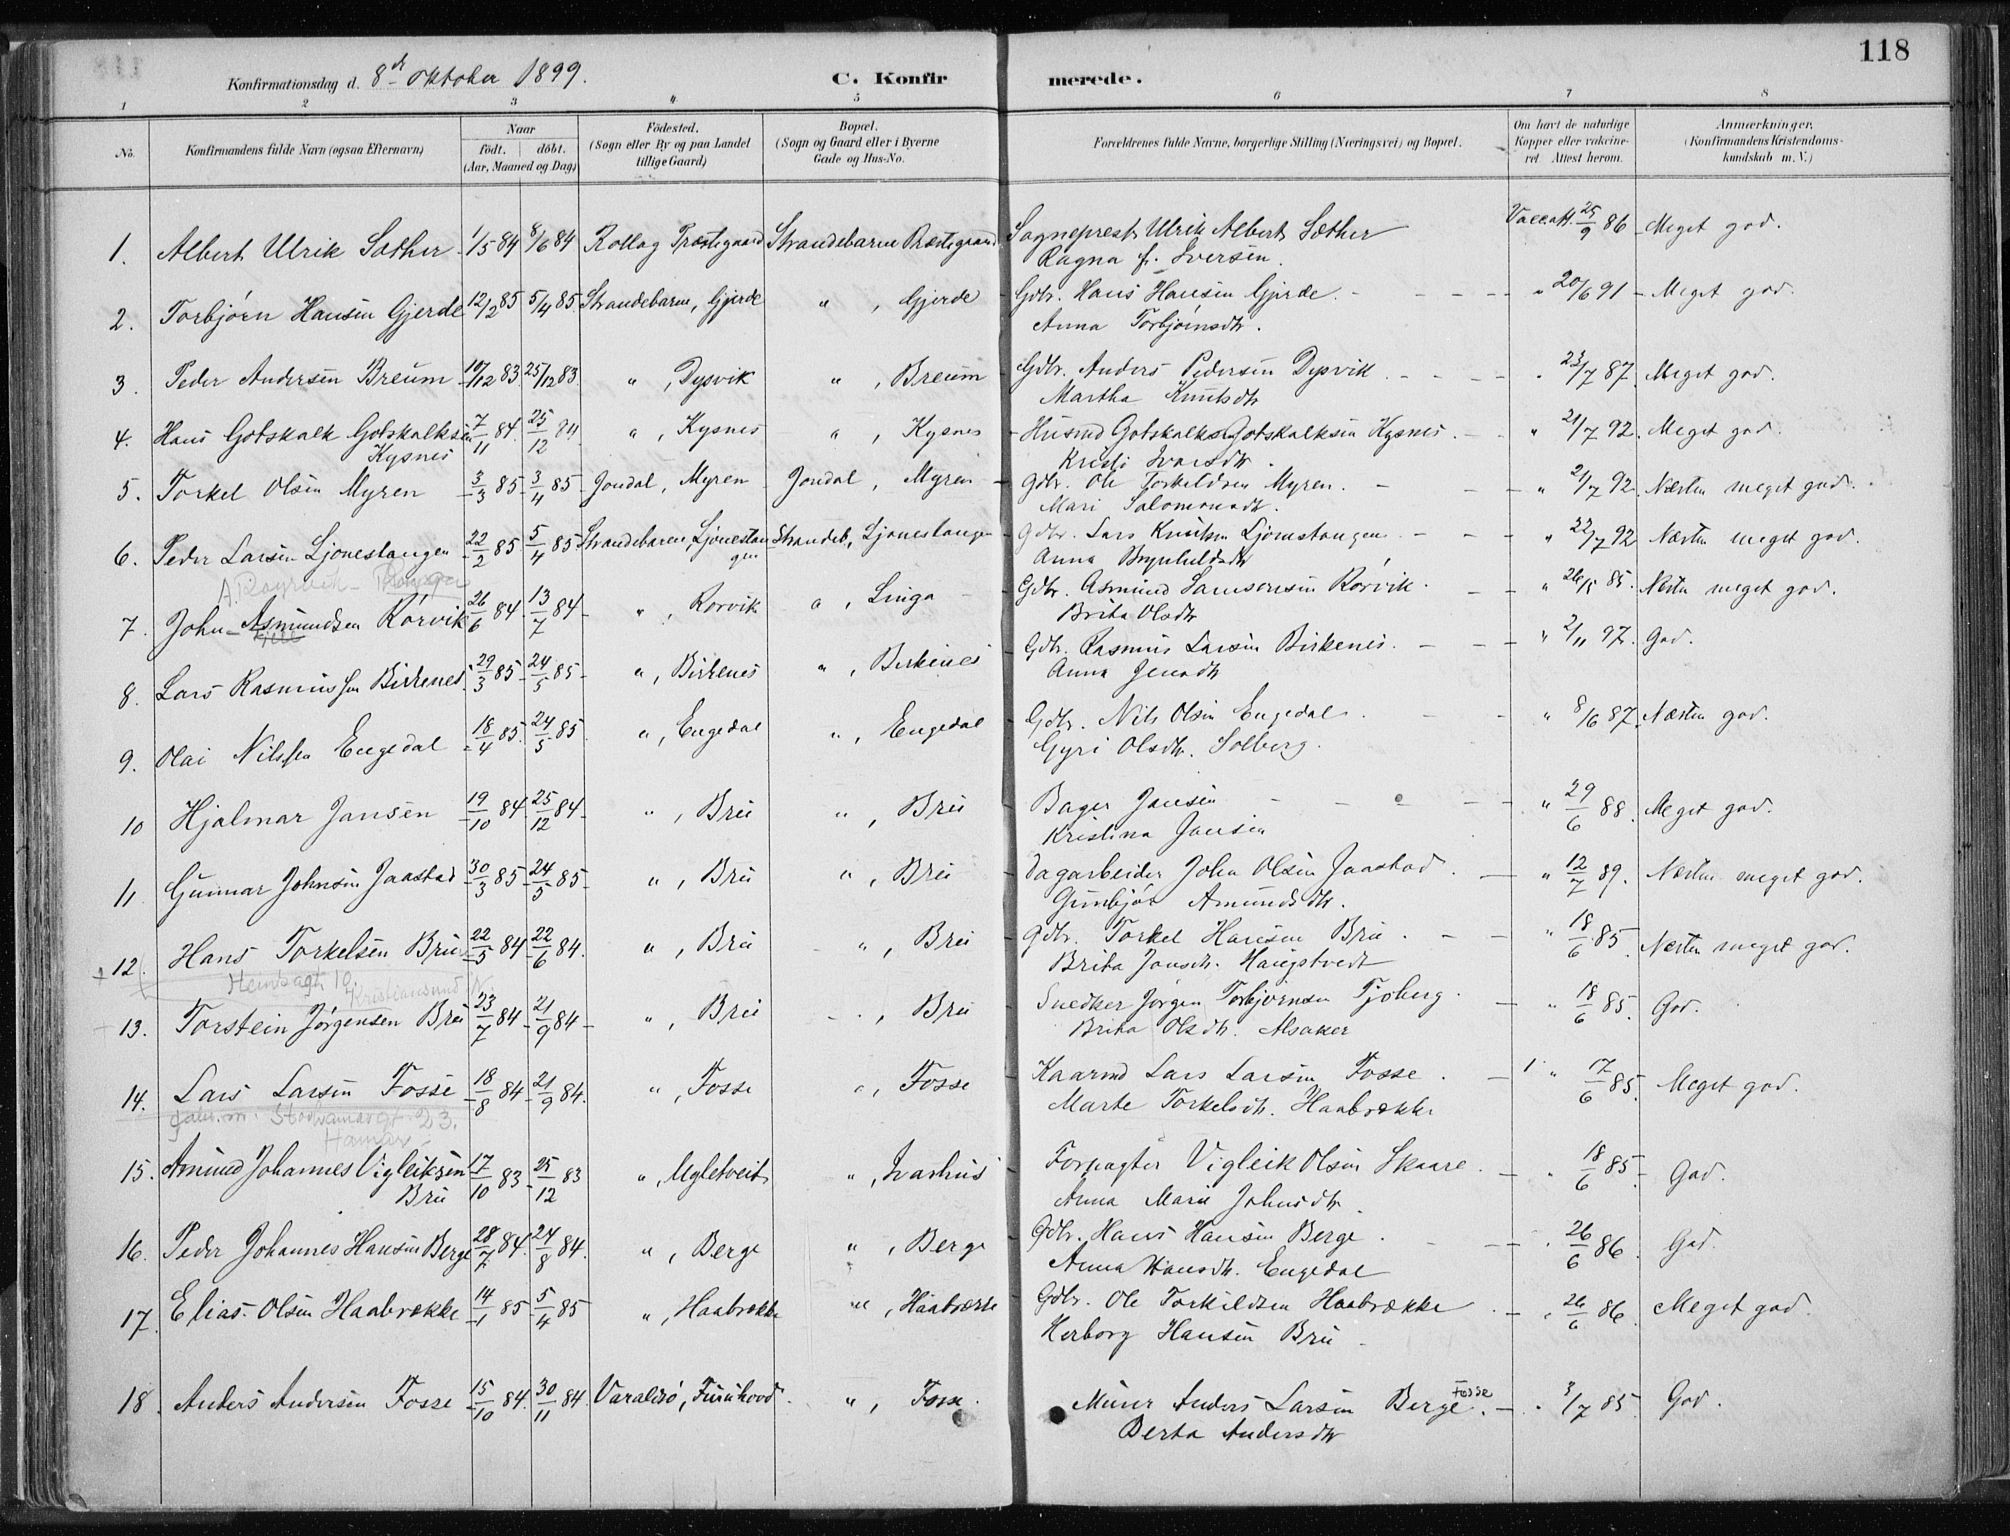 118
Konfirmationsdag d. 8de oktober 1899.
C. Konfir merede.
1 2 3 4 5 6 7 8
No. Konfirmandens fulde Navn (ogsaa Efternavn) Naar Födested. Bopæl. Forældrenes fulde Navne, borgerlige Stilling (Næringsvei) og Bopæl. Om havt de naturlige Anmærkninger.
födt. döbt. (Sogn eller By og paa Landet (Sogn og Gaard eller i Byerne Kopper eller vakcine- (Konfirmandens Kristendoms-
(Aar, Maaned og Dag) tillige Gaard) Gade og Hus-No. ret Attest herom. kundskab m. V.)
1. Albert Ulrik Sæther 1/5 84 8/6 84 Rollag Præstegaard Strandebarm Præstegaard Sogneprest Ulrik Albert Sæther Vaccatt. 25/9 86 Meget god.
Ragna f. Iversen.
2. Torbjørn Hansen Gjerde 12/2 85 5/4 85 Strandebarm, Gjerde " , Gjerde Gdbr. Hans Hansen Gjerde. " 20/6 91 Meget god.
Anna Torbjørnsdtr.
3. Peder Andersen Breum 10/12 83 25/12 83. " , Dysvik " , Breum Gdbr. Anders Pedersen Dysvik " 23/7 87. Meget god.
Martha Knutsdtr
4. Hans Gotskalk Gotskalksen 7/11 84. 25/12 84 " , Kysnes " , Kysnes Husmd Gotskalk Gotskalksen Kysnes. " 21/7 92. Meget god.
Kysnes Kristi Ivarsdtr.
5. Torkel Olsen Myren 3/3 85 3/4 85 Jondal, Myren Jondal, Myren Gdbr. Ole Torkildsen Myren. " 21/7 92. Næsten meget god.
Mari Salomonsdtr.
6. Peder Larsen Ljonestangen 22/2 85. 5/4 85 Strandebarm, Ljonestan Strandeb, Ljonestangen Gdbr. Lars Knutsen Ljonestangen " 22/7 92 Næsten meget god.
gen Anna Brynhildsdtr
7. John Asmundsen Rörvik 26/6 84. 13/7 84 " , Rørvik " , Linga Gdbr. Asmund Samsonsen Rørvik. " 26/8 85. Næsten meget god.
Brita Olsdtr
8. Lars Rasmussen Birkenes 29/3 85 24/5 85 " , Birkenes " , Birkenes Gdbr. Rasmus Larsen Birkenes. " 2/11 97. God.
Anna Jensdtr
9. Olai Nilssen Engedal 18/4 85. 24/5 85 " , Engedal " , Engedal Gdbr. Nils Olsen Engedal " 8/6 87. Næsten god.
Gyri Olsdtr. Solberg.
10 Hjalmar Jansen 19/10 84 25/12 84 " , Bru " , Bru Bager Jansen " 29/6 88. Meget god.
Kristina Jansen
11 Gunnar Johnsen Jaastad 30/3 85 24/5 85 " , Bru " , Bru Dagarbeider John Olsen Jaastad. " 12/7 89. Næsten meget god.
Gunbjør Amundsdtr.
12. Hans Torkelsen Bru 22/5 84 22/6 84. " , Bru " , Bru Gdbr. Torkel Hansen Bru. " 18/6 85. Næsten meget god.
Brita Jonsdtr. Haugstvedt
Kristiansund N.
13. Torstein Jørgensen Bru 23/7 84 21/9 84 " , Bru " , Bru Snedker Jørgen Torbjørnsen Tjoberg. " 18/6 85. God.
Brita Olsdtr. Alsaker
14. Lars Larsen Fosse 18/8 84 21/9 84. " , Fosse " , Fosse Kaarmd Lars Larsen Fosse. " 17/6 85. Meget god.
23. Marte Torkelsdtr. Haabrække
Hamar
15. Amund Johannes Vigleiksen 17/10 83 25/12 83 " , Ugletveit " , Ivarhus Forpagter Vigleik Olsen Skaare. " 18/6 85 God.
Bru Anna Marie Johnsdtr.
16. Peder Johannes Hansen Berge 28/7 84. 24/8 84. " , Berge " , Berge Gdbr. Hans Hansen Berge. " 26/6 86. God.
Anna Hansdtr. Engedal
17. Elias Olsen Haabrække 14/1 85 5/4 85 " , Haabrække " , Haabrække Gdbr. Ole Torkildsen Haabrække. " 26/6 86. Meget god.
Herborg Hansen Bru
18. Anders Andersen Fosse 15/10 84. 30/11 84. Varaldsö, Furuhovd. " , Fosse. Murer Anders Larsen Berge Fosse. " 3/7 85. God.
Berta Andersdtr